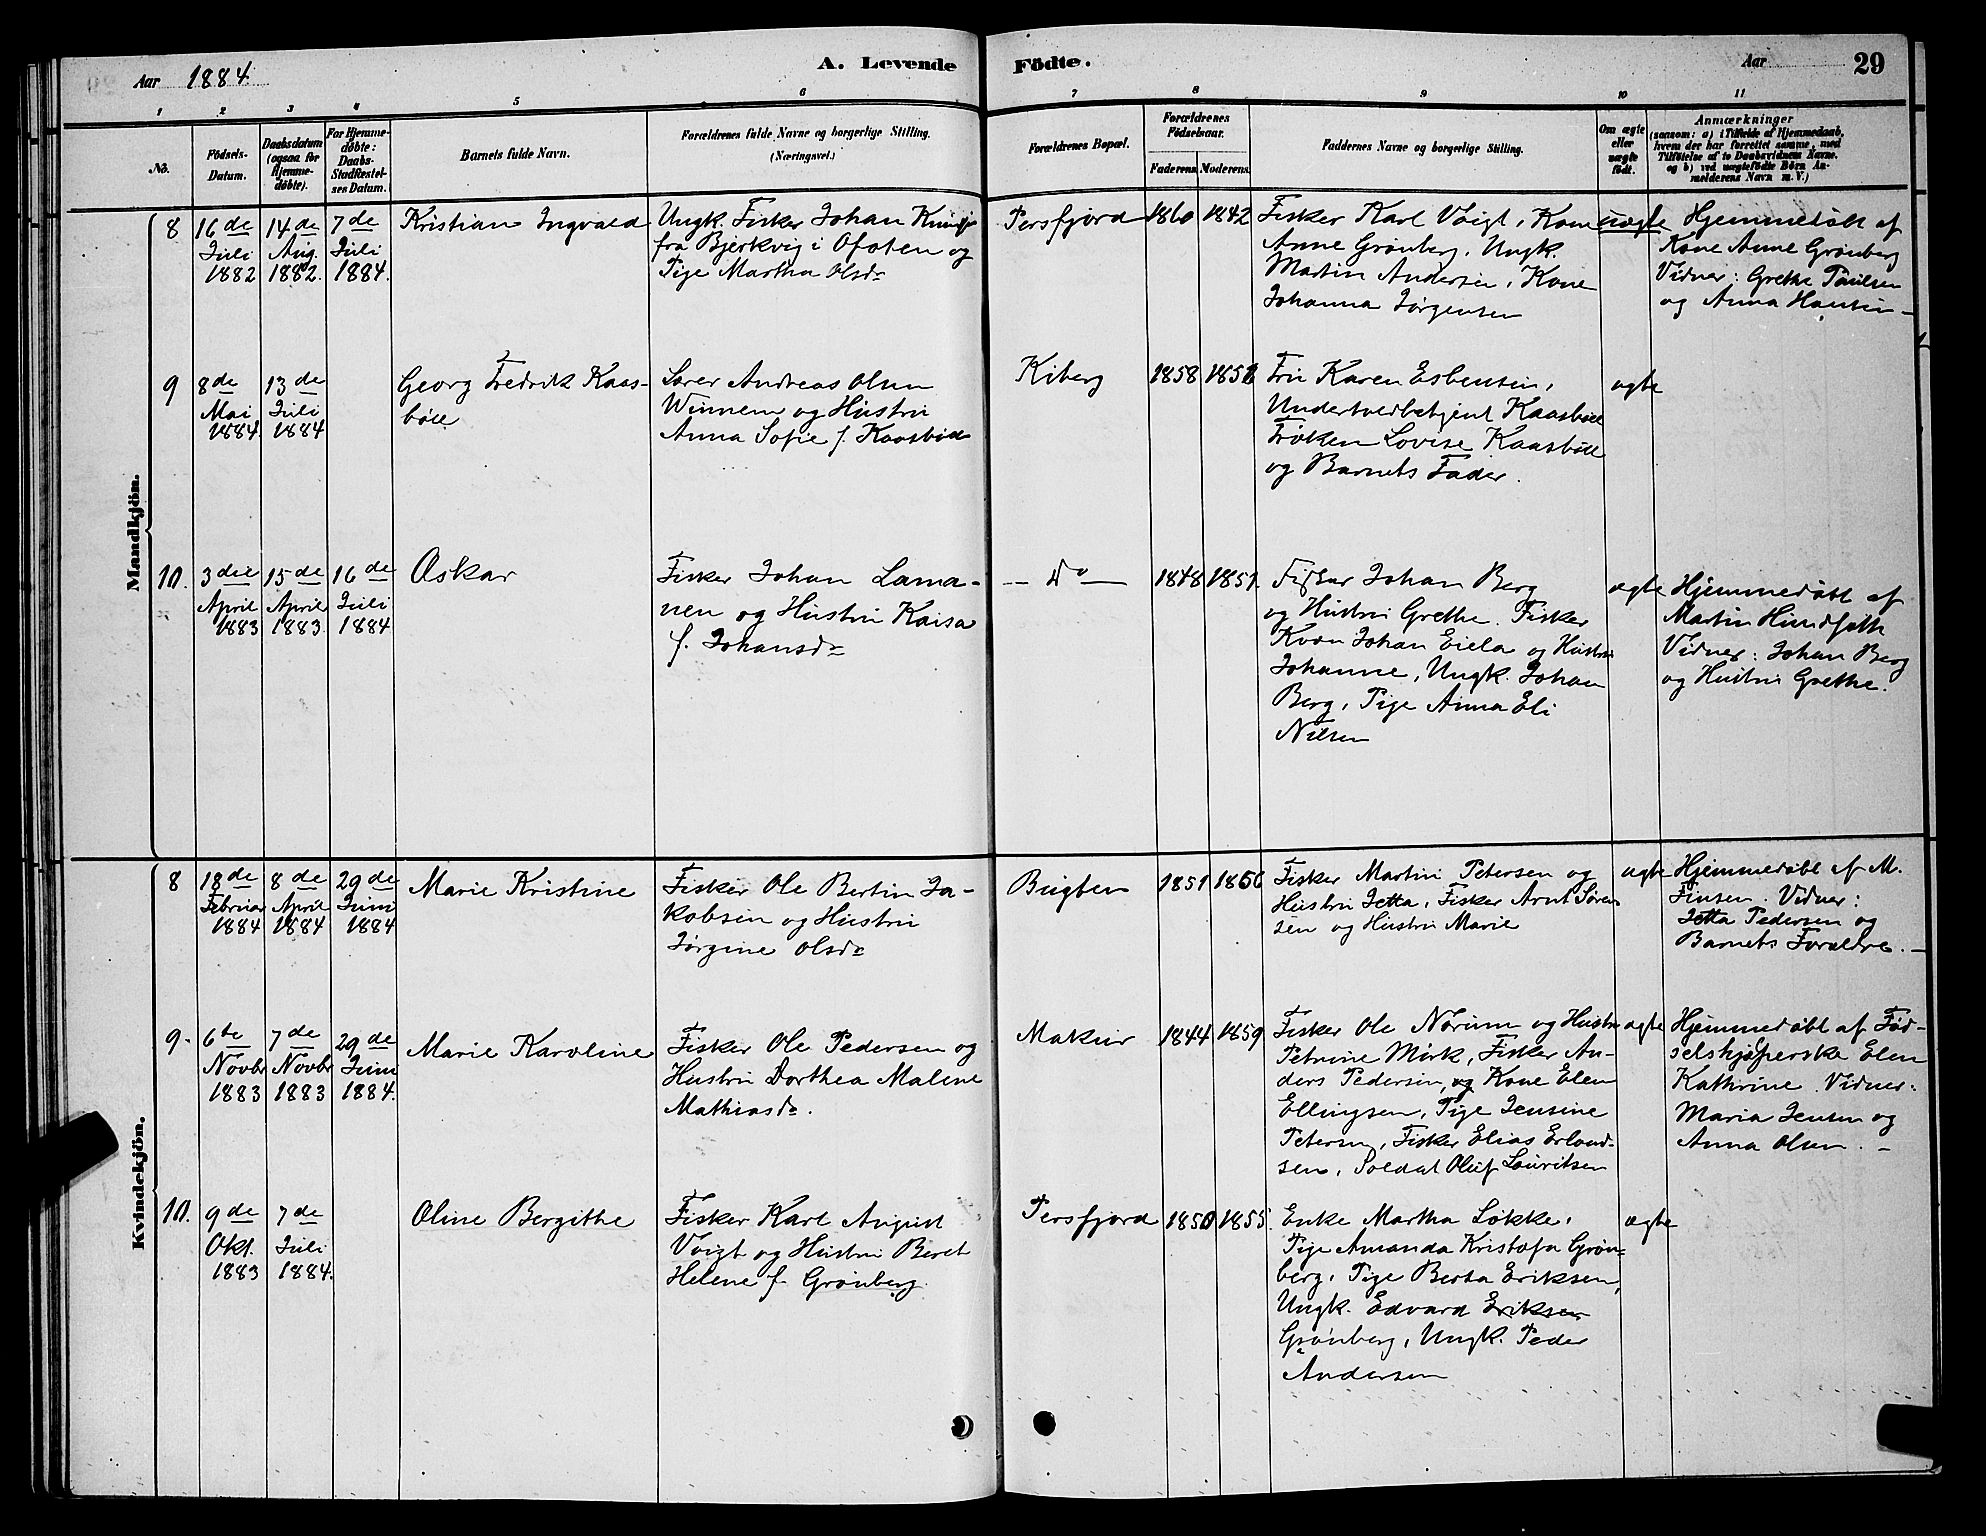 Aar 1884.
A. Levende
Födte.
Aar
29
1
2
3
4
5
6
7
8
9
10
11
No.
Födsels-
Datum.
Daabsdatum
(ogsaa for
Hjemme-
döbte).
For Hjemme-
döbte:
Daabs-
Stadfæstel-
ses Datum.
Barnets fulde Navn.
Forældrenes fulde Navne og borgerlige Stilling.
(Næringsvei.)
Forældrenes Bopæl.
Forældrenes
Födselsaar.
Faderens. Moderens.
Faddernes Navne og borgerlige Stilling.
Om ægte
eller
uægte
födt.
Anmærkninger
(saasom: a) i Tilfælde af Hjemmedaab,
hvem der har forrettet samme, med
Tilföielse af to Daabsvidners Navne.
og b) ved uægtefödte Börn An-
melderens Navn m. V.)
Mandkjön.
8
16de
Juli
1882
14de
Aug.
1882.
7de
Juli
1884.
Kristian Ingvald
Ungk. Fisker Johan
fra Bjerkvig i Ofoten og
Pige Martha Olsdr
Persfjord
1860
1842
Fisker Karl Voigt, Kone
Anne Grønberg, Ungk.
Martin Andersen, Kone
Johanna Jørgensen
uægte
Hjemmedøbt af
Kone Anne Grønberg
Vidner: Grethe Paulsen
og Anna Hansen –
9
8de
Mai
1884.
13de
Juli
1884
Georg Fredrik Kaas-
bøll
Lærer Andreas Olsen
Winnem og Hustru
Anna Sofie f. Kaasbøll
Kiberg
1858
Fru Karen Esbensen,
Undertoldbetjent Kaasbøll
Frøken Lovise Kaasbøll
og Barnets Fader.
ægte
10.
3die
April
1883
15de
April
1883.
16de
Juli
1884
Oskar
Fisker Johan Lama-
nen og Hustru Kaisa
f. Johansdr
– Do –
1848
1851.
Fisker Johan Berg
og Hustru Grethe. Fisker
Kvæn Johan Eiela og Hustru
Johanne, Ungk. Johan
Berg, Pige Anna Eli
Nilsen
ægte
Hjemmedøbt af
Martin Hundseth
Vidner: Johan Berg
og Hustru Grethe.
Kvindekjön.
8
18de
Februar
1884
8de
April
1884
29de
Juni
1884
Marie Kristine
Fisker Ole Bertin Ja-
kobsen og Hustru
Jørgine Olsdr
Bugten
1851
1856
Fisker Martin Petersen og
Hustru Jetta, Fisker Arnt Søren-
sen og Hustru Marie
ægte
Hjemmedøbt af M.
Finsen. Vidner:
Jetta Pedersen og
Barnets Forældre. –
9.
6te
Novbr
1883
7de
Novbr
1883
29de
Juni
1884.
Marie Karoline
Fisker Ole Pedersen og
Hustru Dorthea Malene
Mathiasdr.
Makur
1844
1859
Fisker Ole Norum og Hustru
Petrine Mørk, Fisker An-
ders Pedersen, og Kone Elen
Ellingsen, Pige Jensine
Petersen, Fisker Elias Erland-
sen, Soldat Oluf Lauritsen
ægte
Hjemmedøbt af Fød-
selshjælperske Elen
Kathrine. Vidner:
Maria Jensen og
Anna Olsen. –
10.
9de
Okt.
1883
7de
Juli
1884.
Oline Bergithe
Fisker Karl August
Voigt og Hustru Beret
Helene f. Grønberg.
Persfjord
1850
1855.
Enke Martha Løkke,
Pige Amanda Kristofa Grøn-
berg, Pige Berta Eriksen,
Ungk. Edvard Eriksen
Grønberg, Ungk. Peder
Andersen
ægte